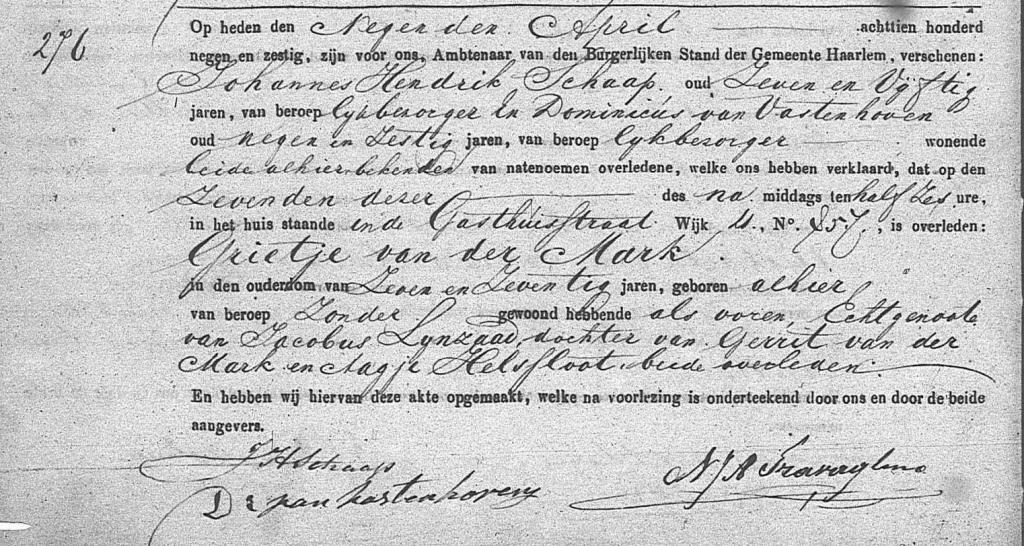 276
Op heden den Negenden April achttien honderd
negen en zestig, zijn voor ons, Ambtenaar van den Burgerlijken Stand der Gemeente Haarlem, verschenen:
Johannes Hendrik Schaap oud Zeven en Vijftig
jaren, van beroep lykbezorger En Dominicus van Vastenhoven
oud negen en Zestig jaren, van beroep lykbezorger wonende
beide alhier bekenden van natenoemen overledene, welke ons hebben verklaard, dat op den
Zevenden dezer des na middags ten half Zes ure,
in het huis staande in de Gasthuisstraat Wijk 4., No. 857., is overleden:
Grietje van der Mark.
in den ouderdom van Zeven en Zeventig jaren, geboren alhier
van beroep Zonder gewoond hebbende als voren, Echtgenoote
van Jacobus Lynzaad, dochter van Gerrit van der
Mark en Aagje Helsfloot. beide overleden.
En hebben wij hiervan deze akte opgemaakt, welke na voorlezing is onderteekend door ons en door de beide
aangevers.
J H Schaap
D van Vastenhoven